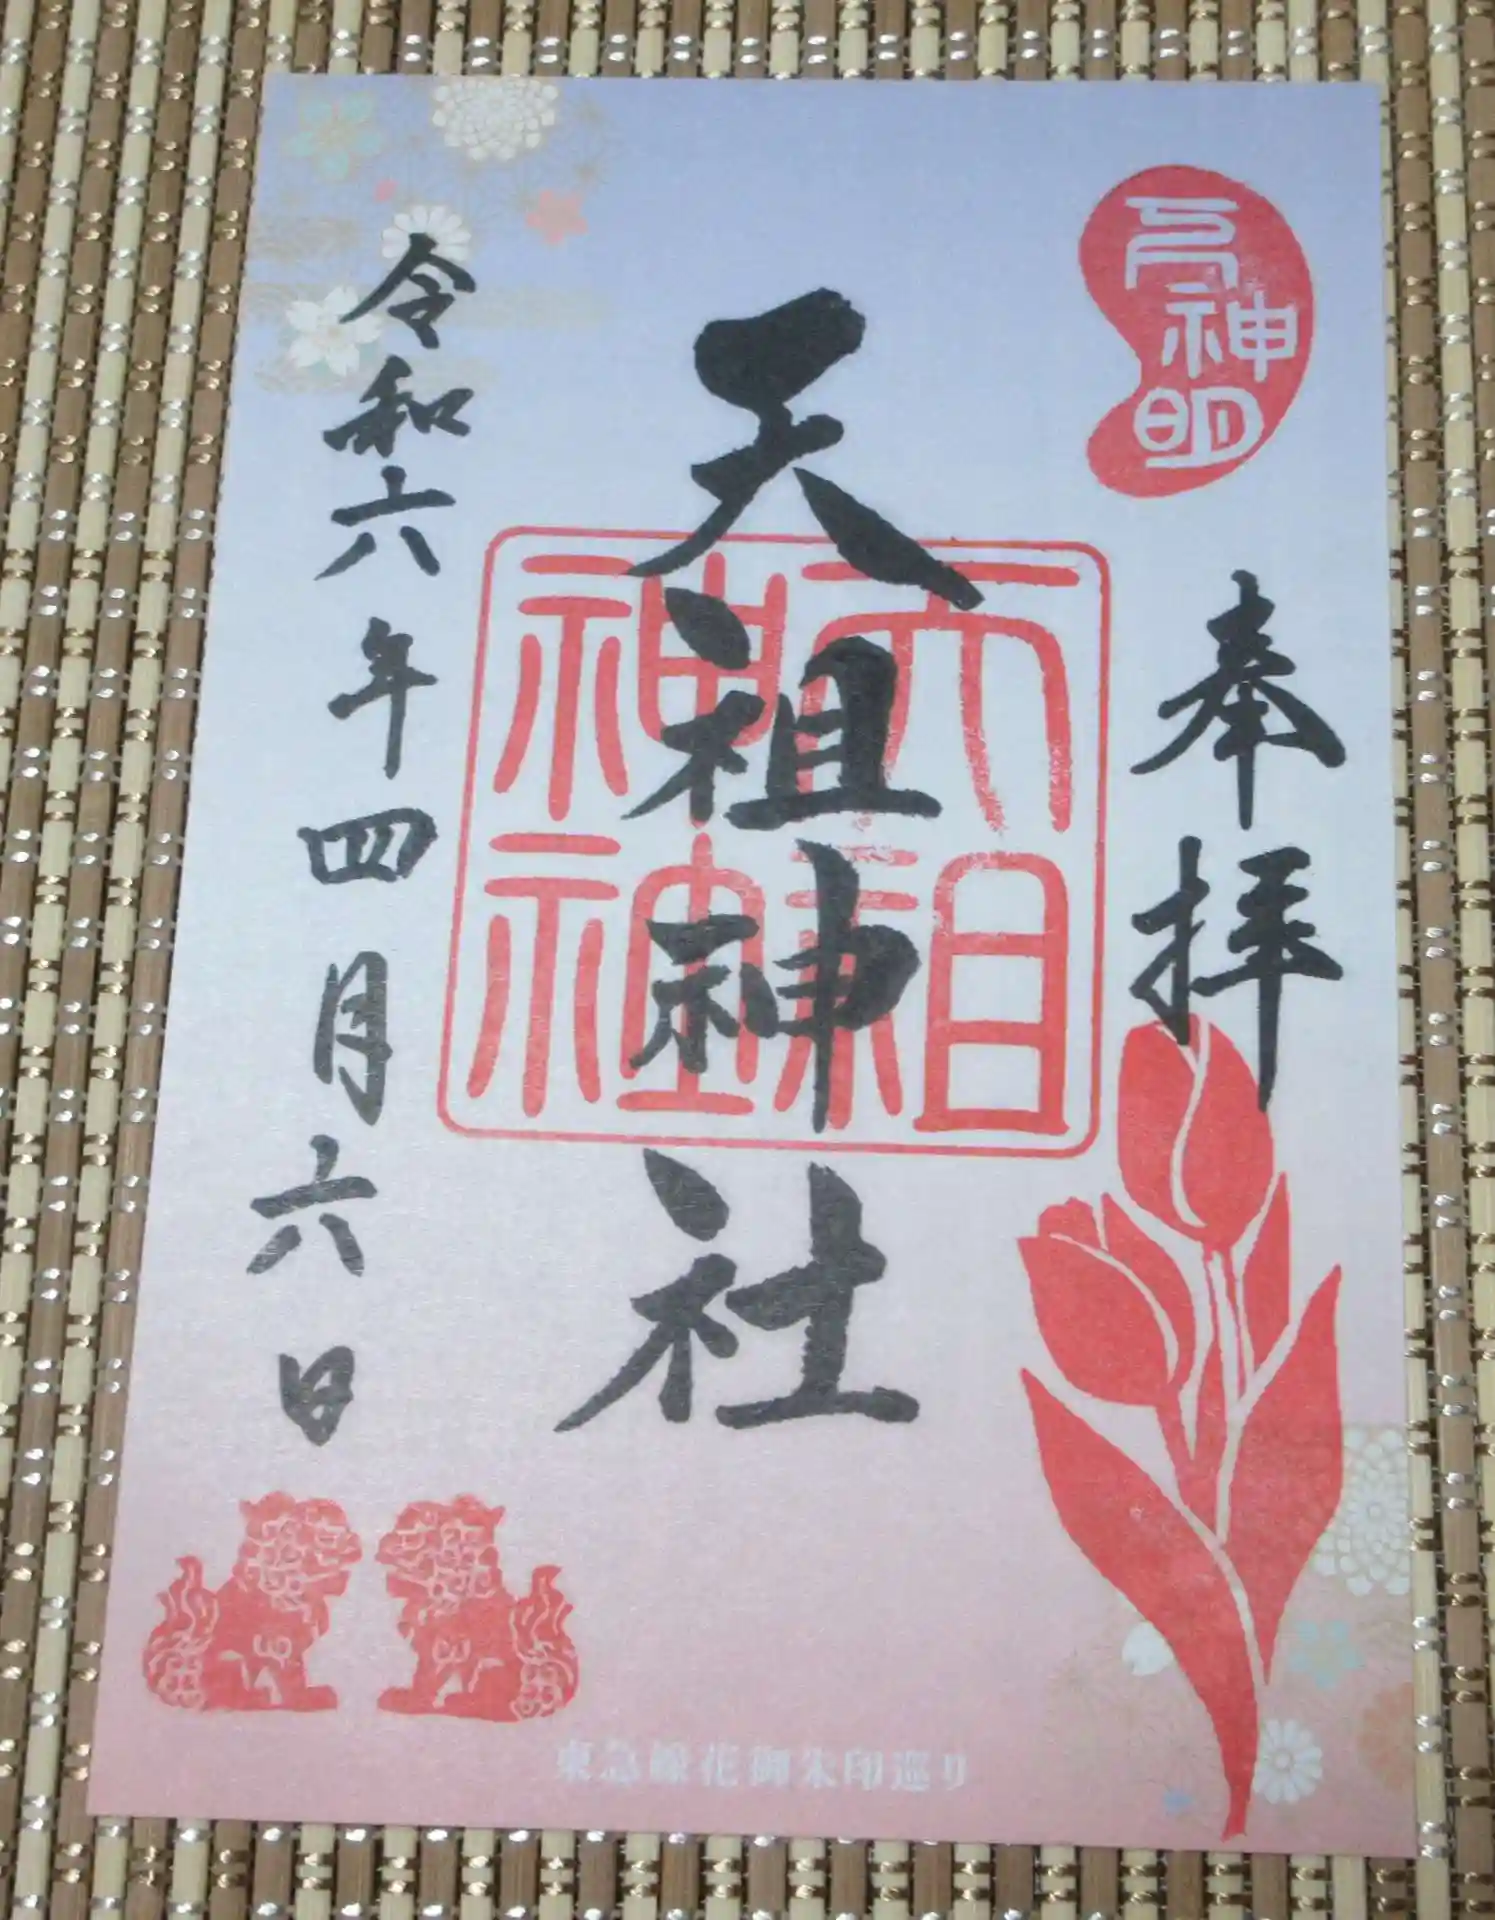 元神明
奉拝
天祖神社
天祖神社
令和六年四月六日
東急線花御朱印巡り